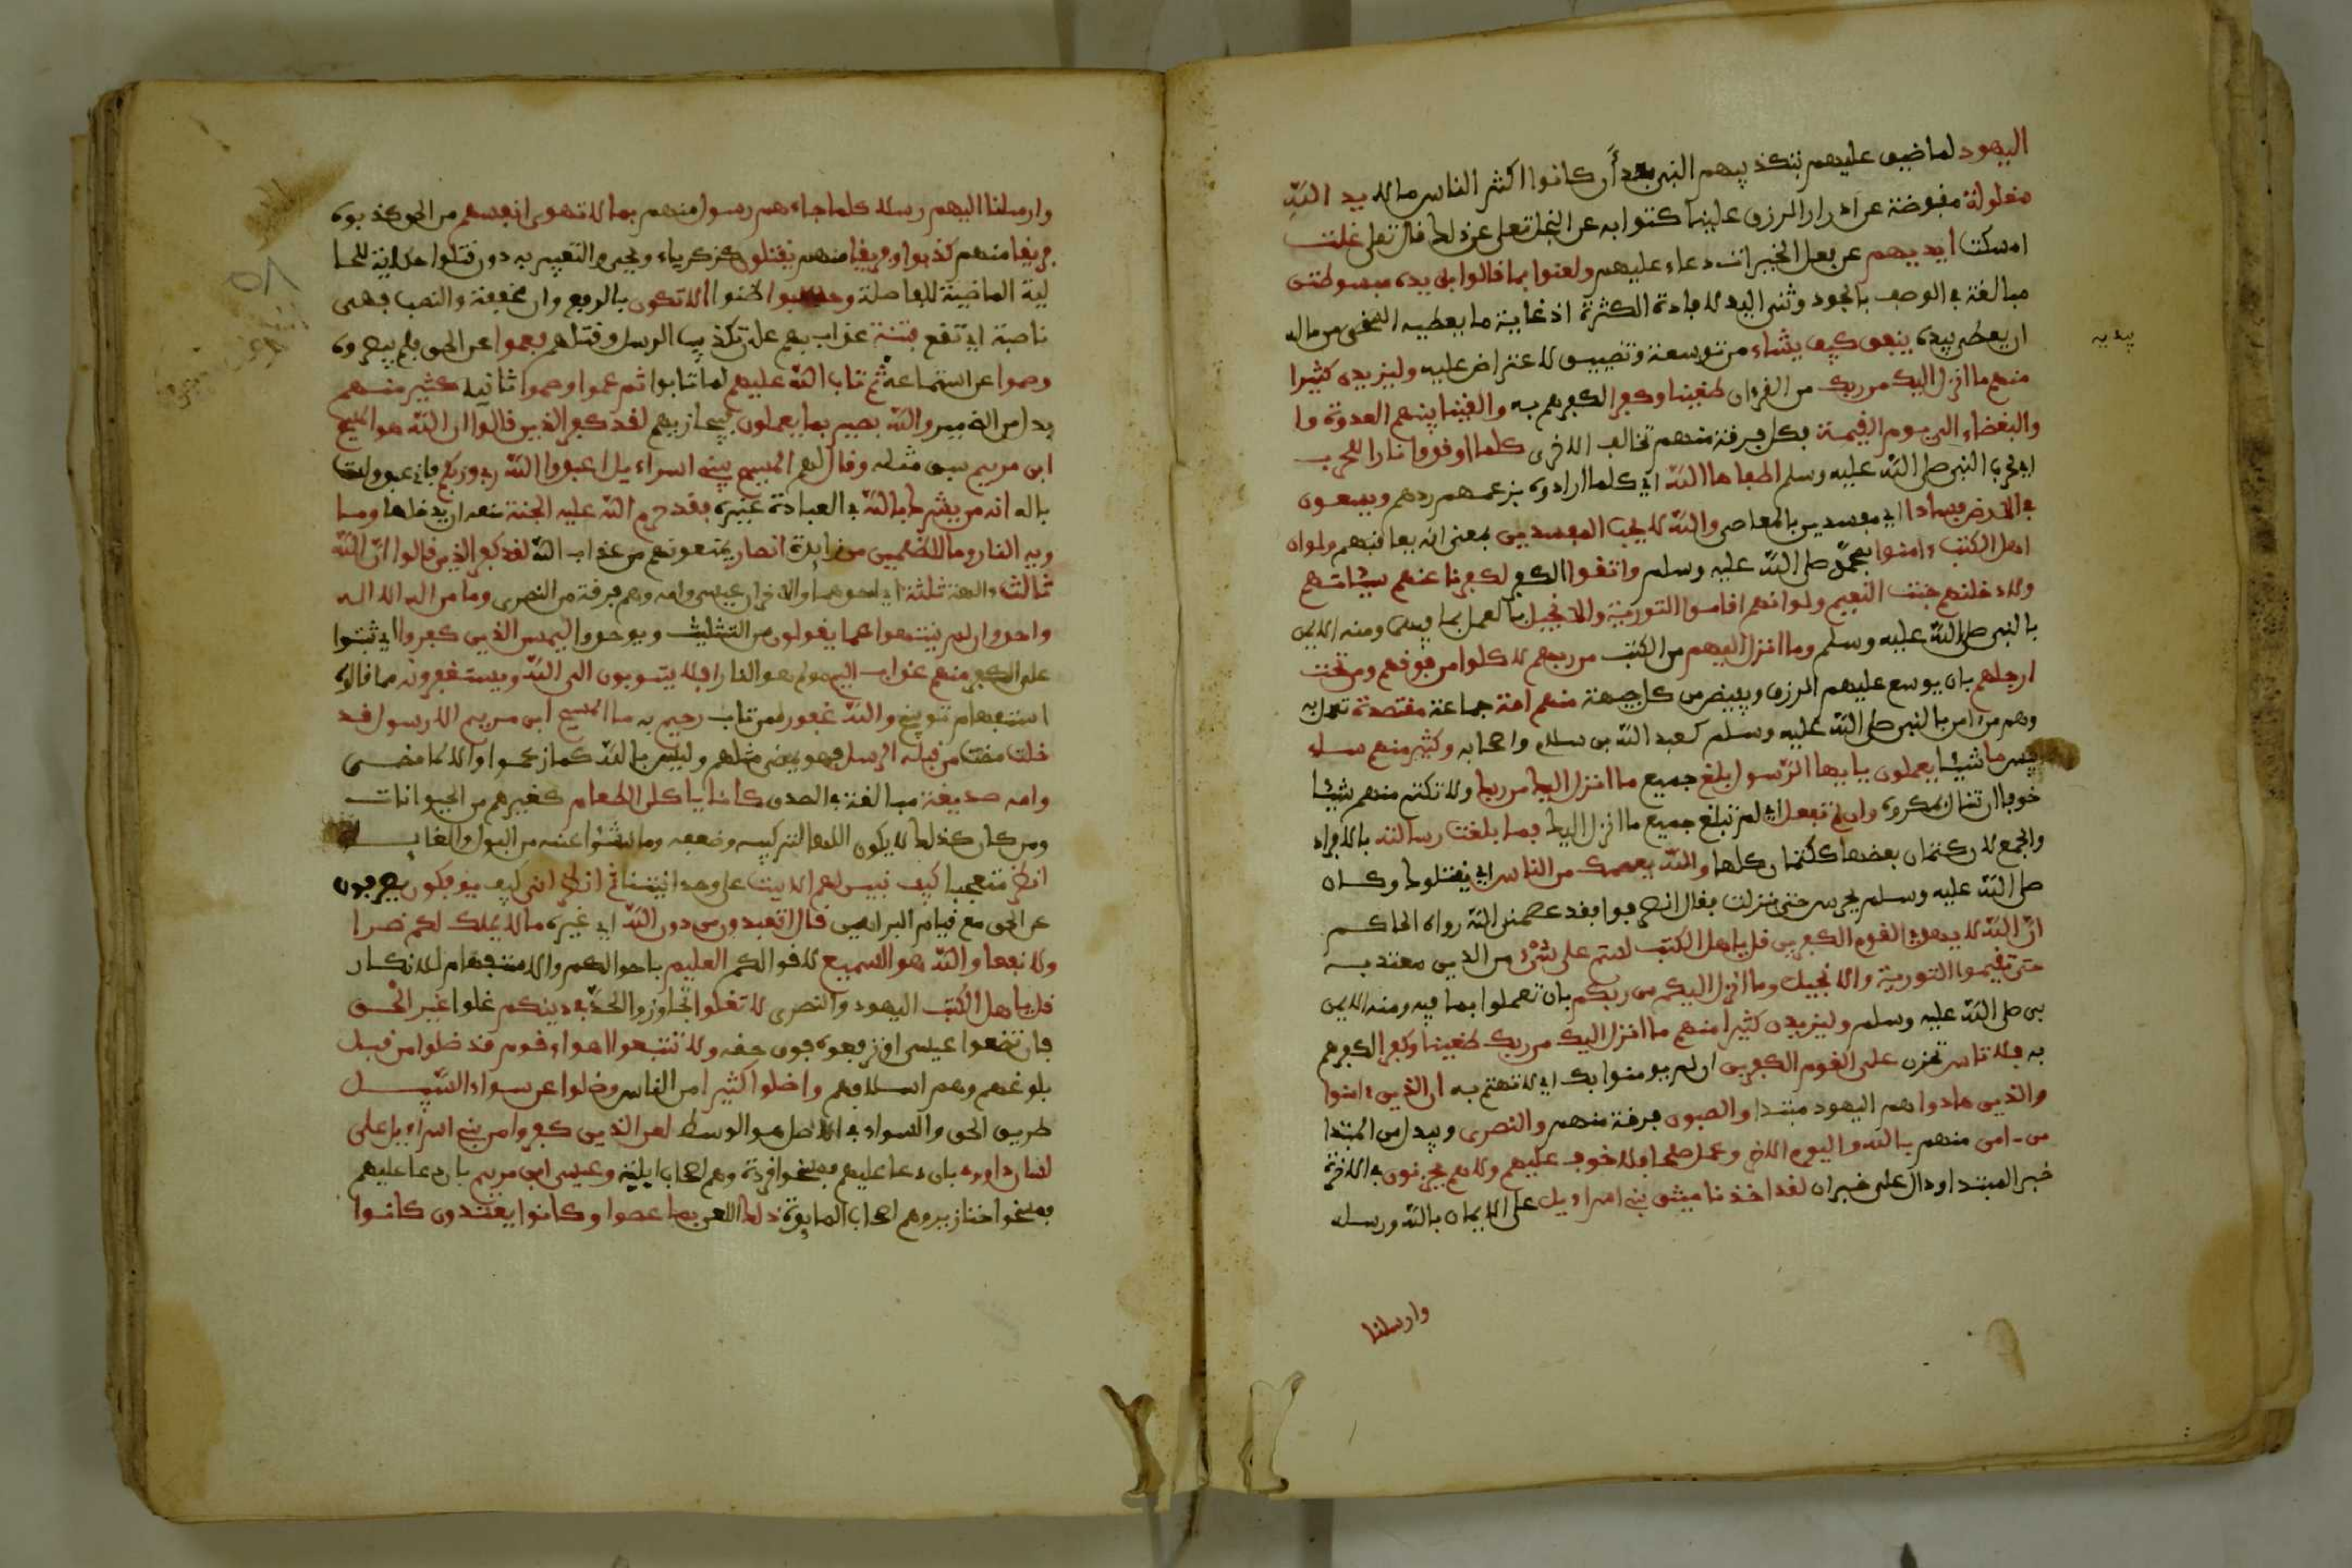 اليهود لما ضيق عليهم بتكذيبهم النبي بعد أن كانوا اكثر الناس مالا يد الله
مغلولة مقبوضة عن ادرار الرزق علينا كنوا به عن البخل تعلى عن ذلك قال تعلى غلت
امسكت ايديهم عن فعل الخيرات دعاء عليهم ولعنوا بما قالوا بل يده مبسوطتن
مبالغة في الوصف بالجود وثنى اليد لافادة الكثرة اذ غاية ما يعطيه السخي من ماله
ان يعطى بيده ينفق كيف يشاء من توسعة وتضييق لا عتراض عليه وليزيدن كثيرا
بيديه
منهم ما انزل اليك من ربك من القرءان طغينا وكفرا لكفرهم به والقينا بينهم العدوة وا
والبغضاء الى يوم القيمة فكل فرقة منهم تخالف الاخرى كلما اوقدوا نارا للحرب
اي لحرب النبي صلى الله عليه وسلم اطفاها الله اي كلما ارادوه بزعمهم ردهم ويسعون
في الارض فسادا اي مفسدين بالمعاصي والله لا يحب المفسدين بمعنى انه يعاقبهم ولو ان
اهل الكتب ءامنوا بمحمد صلى الله عليه وسلم واتقوا الكفر لكفرنا عنهم سيئاتهم
ولادخلنهم جنت النعيم ولو انهم اقاموا التورية والانجيل بالعمل بما فيهما ومنه الايمن
بالنبي صلى الله عليه وسلم وما انزل اليهم من الكتب من ربهم لاكلوا من فوقهم ومن تحت
ارجلهم بان يوسع عليهم الرزق ويفيض من كل جهة منهم امة جماعة مقتصدة تعمل به
وهم من امن بالنبي صلى الله عليه وسلم كعبد الله بن سلام واصحابه وكثير منهم ساء
بيس ما شيئا يعملون يايها الرسول بلغ جميع ما انزل اليك من ربك ولا تكتم منهم شيئا
خوفا ان تنال بمكروه وان لم تفعل اي لم تبلغ جميع ما انزل اليك فما بلغت رسالته بالافراد
والجمع لان كتمان بعضها ككتمان كلها والله يعصمك من الناس اي يقتلوك وكان
صلى الله عليه وسلم يحرس حتى نزلت فقال انصرفوا فقد عصمني الله رواه الحاكم
ان الله لا يهدي القوم الكفرين قل ياهل الكتب لستم على شيء من الدين معتد به
حتى تقيموا التورية والانجيل وما انزل اليكم من ربكم بان تعملوا بما فيه ومنه الايمن
بى صلى الله عليه وسلم وليزيدن كثيرا منهم ما انزل اليك من ربك طغينا وكفرا لكفرهم
به فلا تاس تحزن على القوم الكفرين ان لم يومنوا بك اي لا تهتم به ان الذين ءامنوا
والذين هادوا هم اليهود مبتدا والصبون فرقة منهم والنصرى ويبدل من المبتدا
من ءامن منهم بالله واليوم الاخر وعمل صلحا فلا خوف عليهم ولا هم يحزنون في الاخرة
خبر المبتدا ودال على خبر ان لقد اخذنا ميثق بني اسراءيل على الايمان بالله ورسله
وارسلنا
وارسلنا اليهم رسلا كلما جاءهم رسول منهم بما لا تهوى انفسهم من الحق كذبوه
فريقا منهم كذبوا وفريقا منهم يقتلون كزكرياء ويحيى والتعبير به دون قتلوا حكاية للحا
لية الماضية للفاصلة وحسبوا ظنوا الا تكون بالرفع وان مخففة والنصب فهي
ناصبة اي تقع فتنة عذاب بهم على تكذيب الرسل وقتلهم فعموا عن الحق فلم يبصروه
وصموا عن استماعه ثم تاب الله عليهم لما تابوا ثم عموا وصموا ثانيا كثير منهم
بدل من الضمير والله بصير بما يعملون فيجازيهم لقد كفر الذين قالوا ان الله هو المسيح
ابن مريم سبق مثله وقال لهم المسيح يبني اسراءيل اعبدوا الله ربي وربكم فاني عبد ولست
باله انه من يشرك بالله في العبادة غيره فقد حرم الله عليه الجنة منعه ان يدخلها وما
ويه النار وما للظلمين من زايدة انصار يمنعونهم من عذاب الله لقد كفر الذين قالوا ان الله
ثالث ءالهة ثلثة اي احدها والاخران عيسى وامه وهم فرقة من النصرى وما من اله الا اله
واحد وان لم ينتهوا عما يقولون من التثليث ويوحدوا ليمسن الذين كفروا اي ثبتوا
على الكفر منهم عذاب اليم مولم هو النار افلا يتوبون الى الله ويستغفرونه مما قالوه
استفهام توبيخ والله غفور لمن تاب رحيم به ما المسيح ابن مريم الا رسول قد
خلت مضت من قبله الرسل فهو يمضى مثلهم وليس بالله كما زعموا والا لما مضى
وامه صديقة مبالغة في الصدق كانا ياكلان الطعام كغيرهم من الحيوانات
ومن كان كذلك لا يكون الها لتركيبه وضعفه وما ينشوا عنه من البول والغايط
انظر متعجبا كيف نبين لهم الايت على وحدانيتنا ثم انظر انى كيف يوفكون يصرفون
عن الحق مع قيام البراهين قل اتعبدون من دون الله اي غيره ما لا يملك لكم ضرا
ولا نفعا والله هو السميع لاقوالكم العليم باحوالكم والاستفهام للانكار
قل ياهل الكتب اليهود والنصرى لا تغلوا تجاوزوا الحد في دينكم غلوا غير الحق
بان تضعوا عيسى او ترفعوه فوق حقه ولا تتبعوا اهواء قوم قد ضلوا من قبل
بلوغهم وهم اسلافهم واضلوا كثيرا من الناس وضلوا عن سواء السبيل
طريق الحق والسواء في الاصل هو الوسط لعن الذين كفروا من بني اسراءيل على
لسان داوود بان دعا عليهم فمسخوا قردة وهم اصحاب ايلة وعيسى ابن مريم بان دعا عليهم
فمسخوا خنازير وهم اصحاب المايدة ذلك اللعن بما عصوا وكانوا يعتدون كانوا